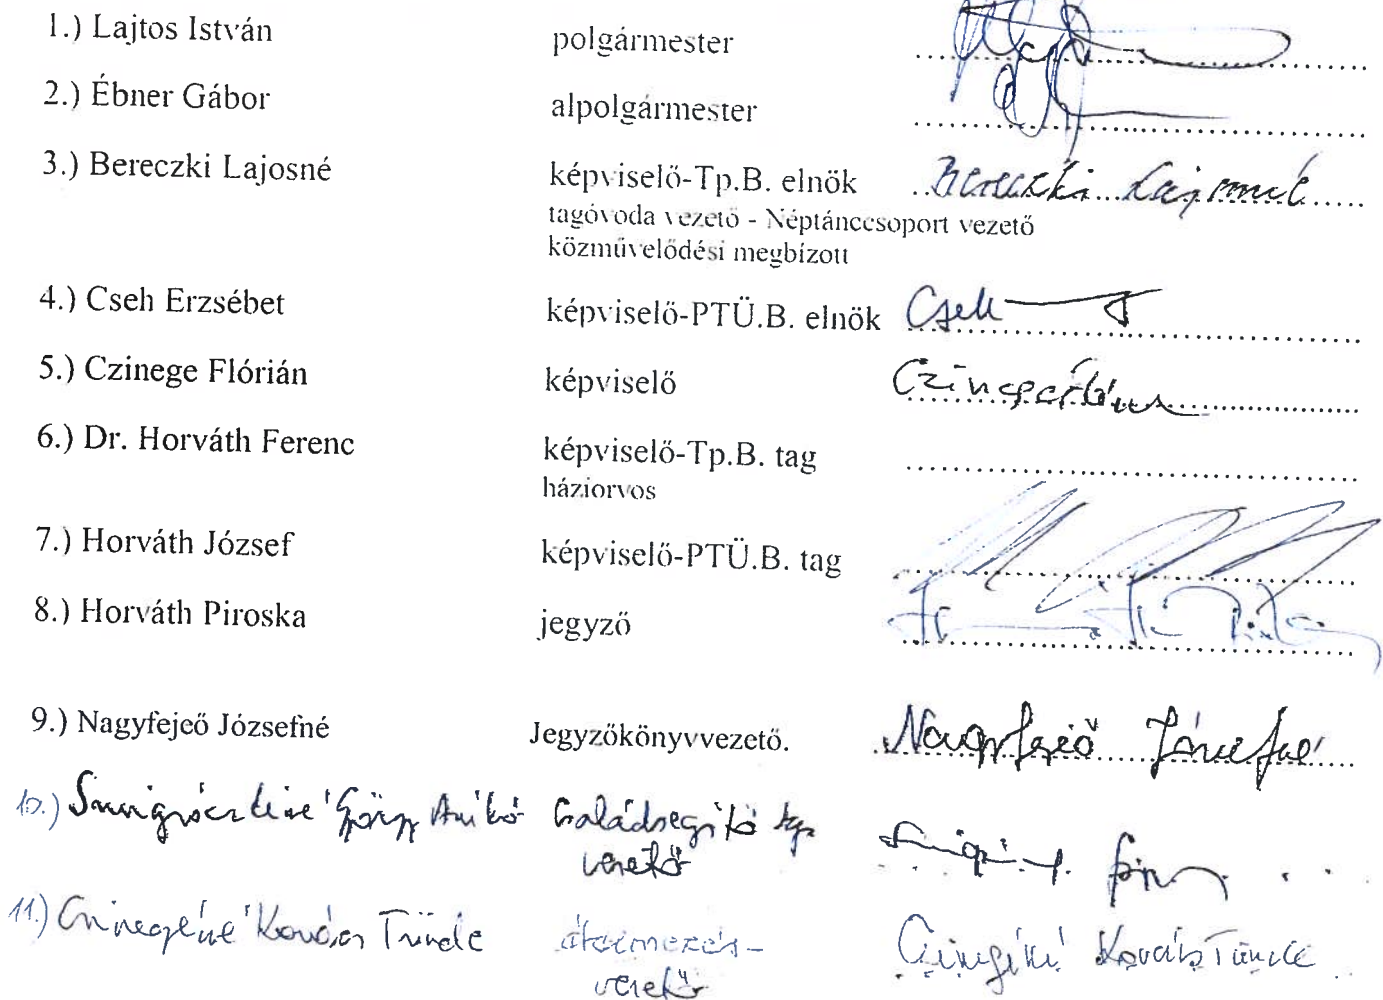 1.) Lajtos István polgármester
2.) Ébner Gábor alpolgármester
3.) Bereczki Lajosné képviselő-Tp.B. elnök Bereczki Lajosné
tagóvoda vezető - Néptánccsoport vezető
közművelődési megbízott
4.) Cseh Erzsébet képviselő-PTÜ.B. elnök Cseh
5.) Czinege Flórián képviselő Czinege Flórián
6.) Dr. Horváth Ferenc képviselő-Tp.B. tag
háziorvos
7.) Horváth József képviselő-PTÜ.B. tag
8.) Horváth Piroska jegyző
9.) Nagyfejeő Józsefné Jegyzőkönyvvezető. Nagyfejeő Józsefné
10.) György Anikó Családsegítő kp.
vezető
11.) Czinegéné Kovács Tünde élelmezés-
vezető Czinegéné Kovács Tünde